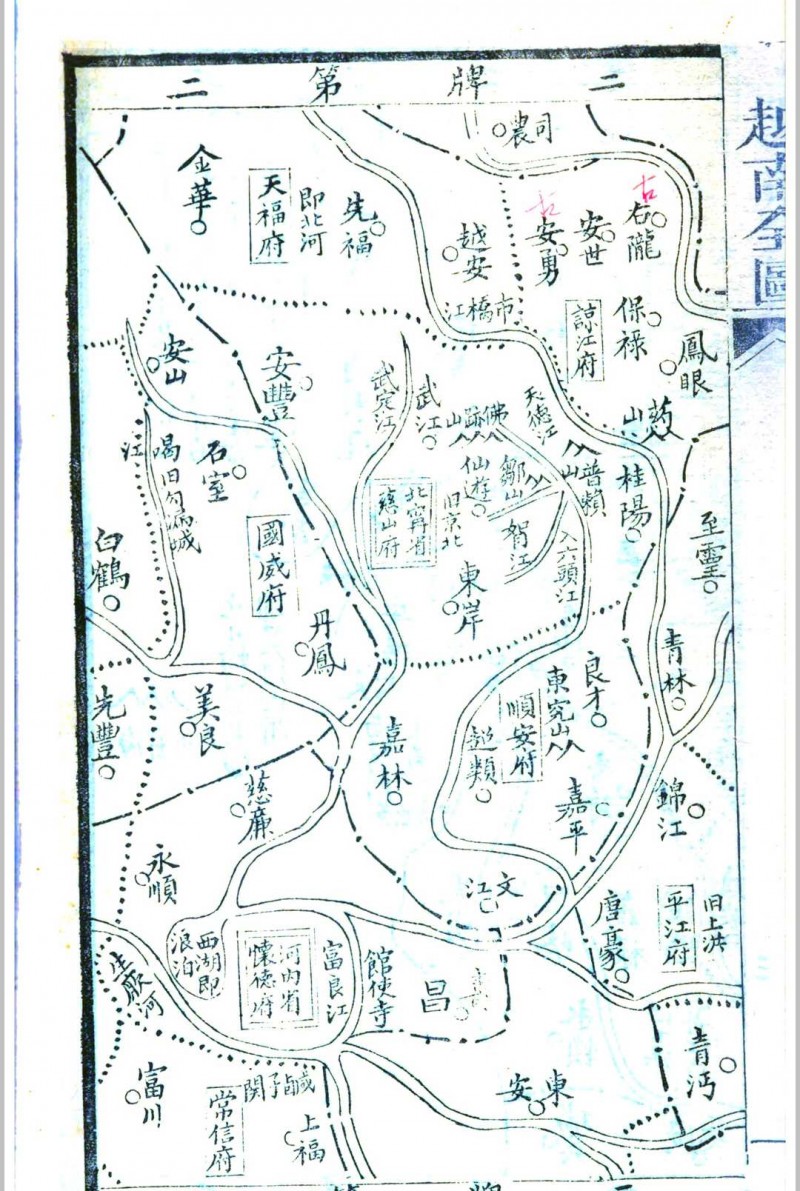 越南全圖
二牌第二
司農
古
右隴
古
安世
安勇
越安
先福
即北河
天福府
金華
市橋江
諒江府
保祿
鳳眼
安山
安豐
武定江
武江
佛跡山
天德江
山
桂陽
普賴山
鄒山
仙遊
舊京北
北寧省
慈山府
賀江
入六頭江
東岸
至靈
青林
石室
喝江
國威府
白鶴
丹鳳
先豐
美良
良才
東究山
順安府
超類
嘉林
嘉平
錦江
慈廉
永順
文江
唐豪
平江府
旧上洪
西湖即
浪泊
河內省
懷德府
富良江
館使寺
昌
河
富川
青沔
東安
鹹子關
上福
常信府